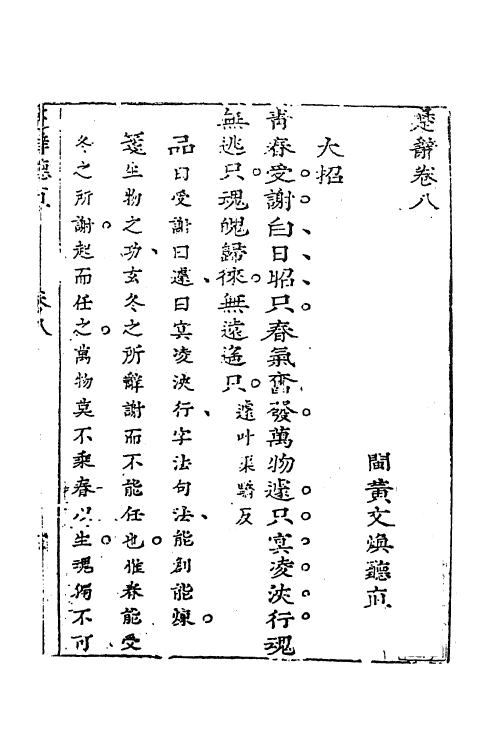 楚辭卷八
閩黃文煥聽直
大招
青春受謝白日昭只春氣奮發萬物遽只冥凌浹行魂
無逃只魂魄歸徠無遠遙只遽叶渠驕反
品曰受謝曰遽曰冥凌浹行字法句法能創能煉
箋生物之功玄冬之所辭謝而不能任也惟春能受
冬之所謝起而任之萬物莫不乘春以生魂獨不可
楚辭聽直 卷八